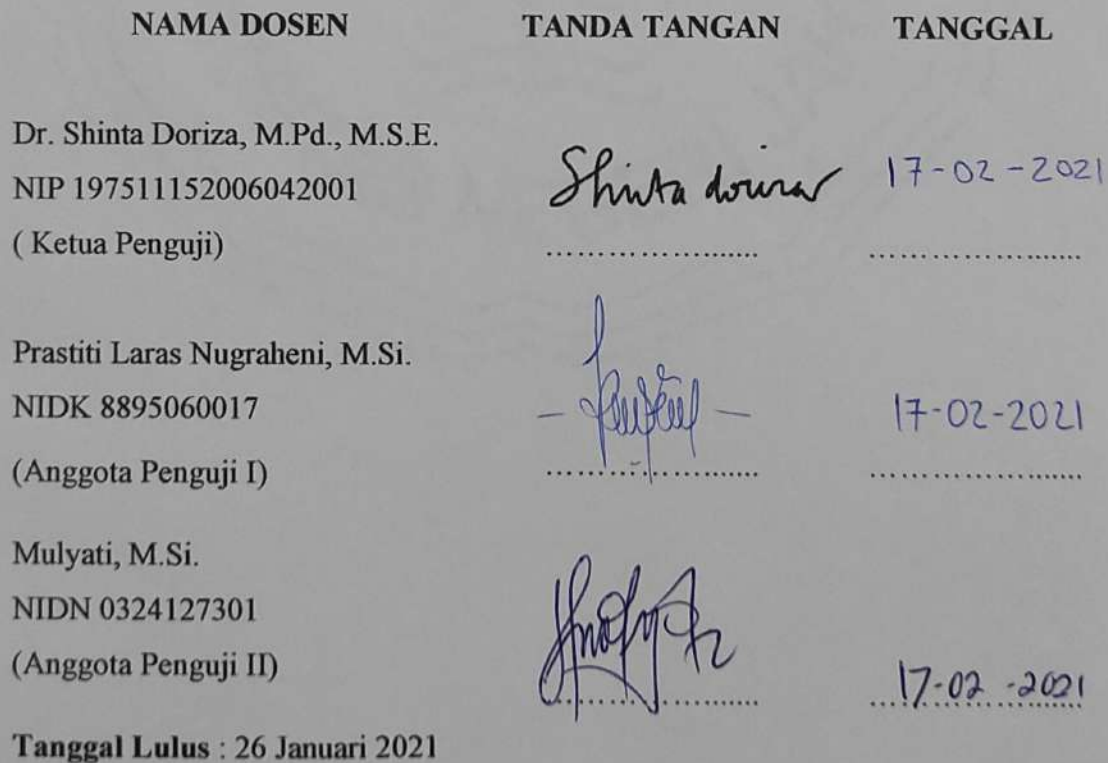 NAMA DOSEN TANDA TANGAN TANGGAL
Dr. Shinta Doriza, M.Pd., M.S.E.
NIP 197511152006042001 Shinta doriza 17-02-2021
( Ketua Penguji) ...................... ......................
Prastiti Laras Nugraheni, M.Si.
NIDK 8895060017 17-02-2021
(Anggota Penguji I) ...................... ......................
Mulyati, M.Si.
NIDN 0324127301
(Anggota Penguji II) 17-02-2021
...................... ......................
Tanggal Lulus : 26 Januari 2021